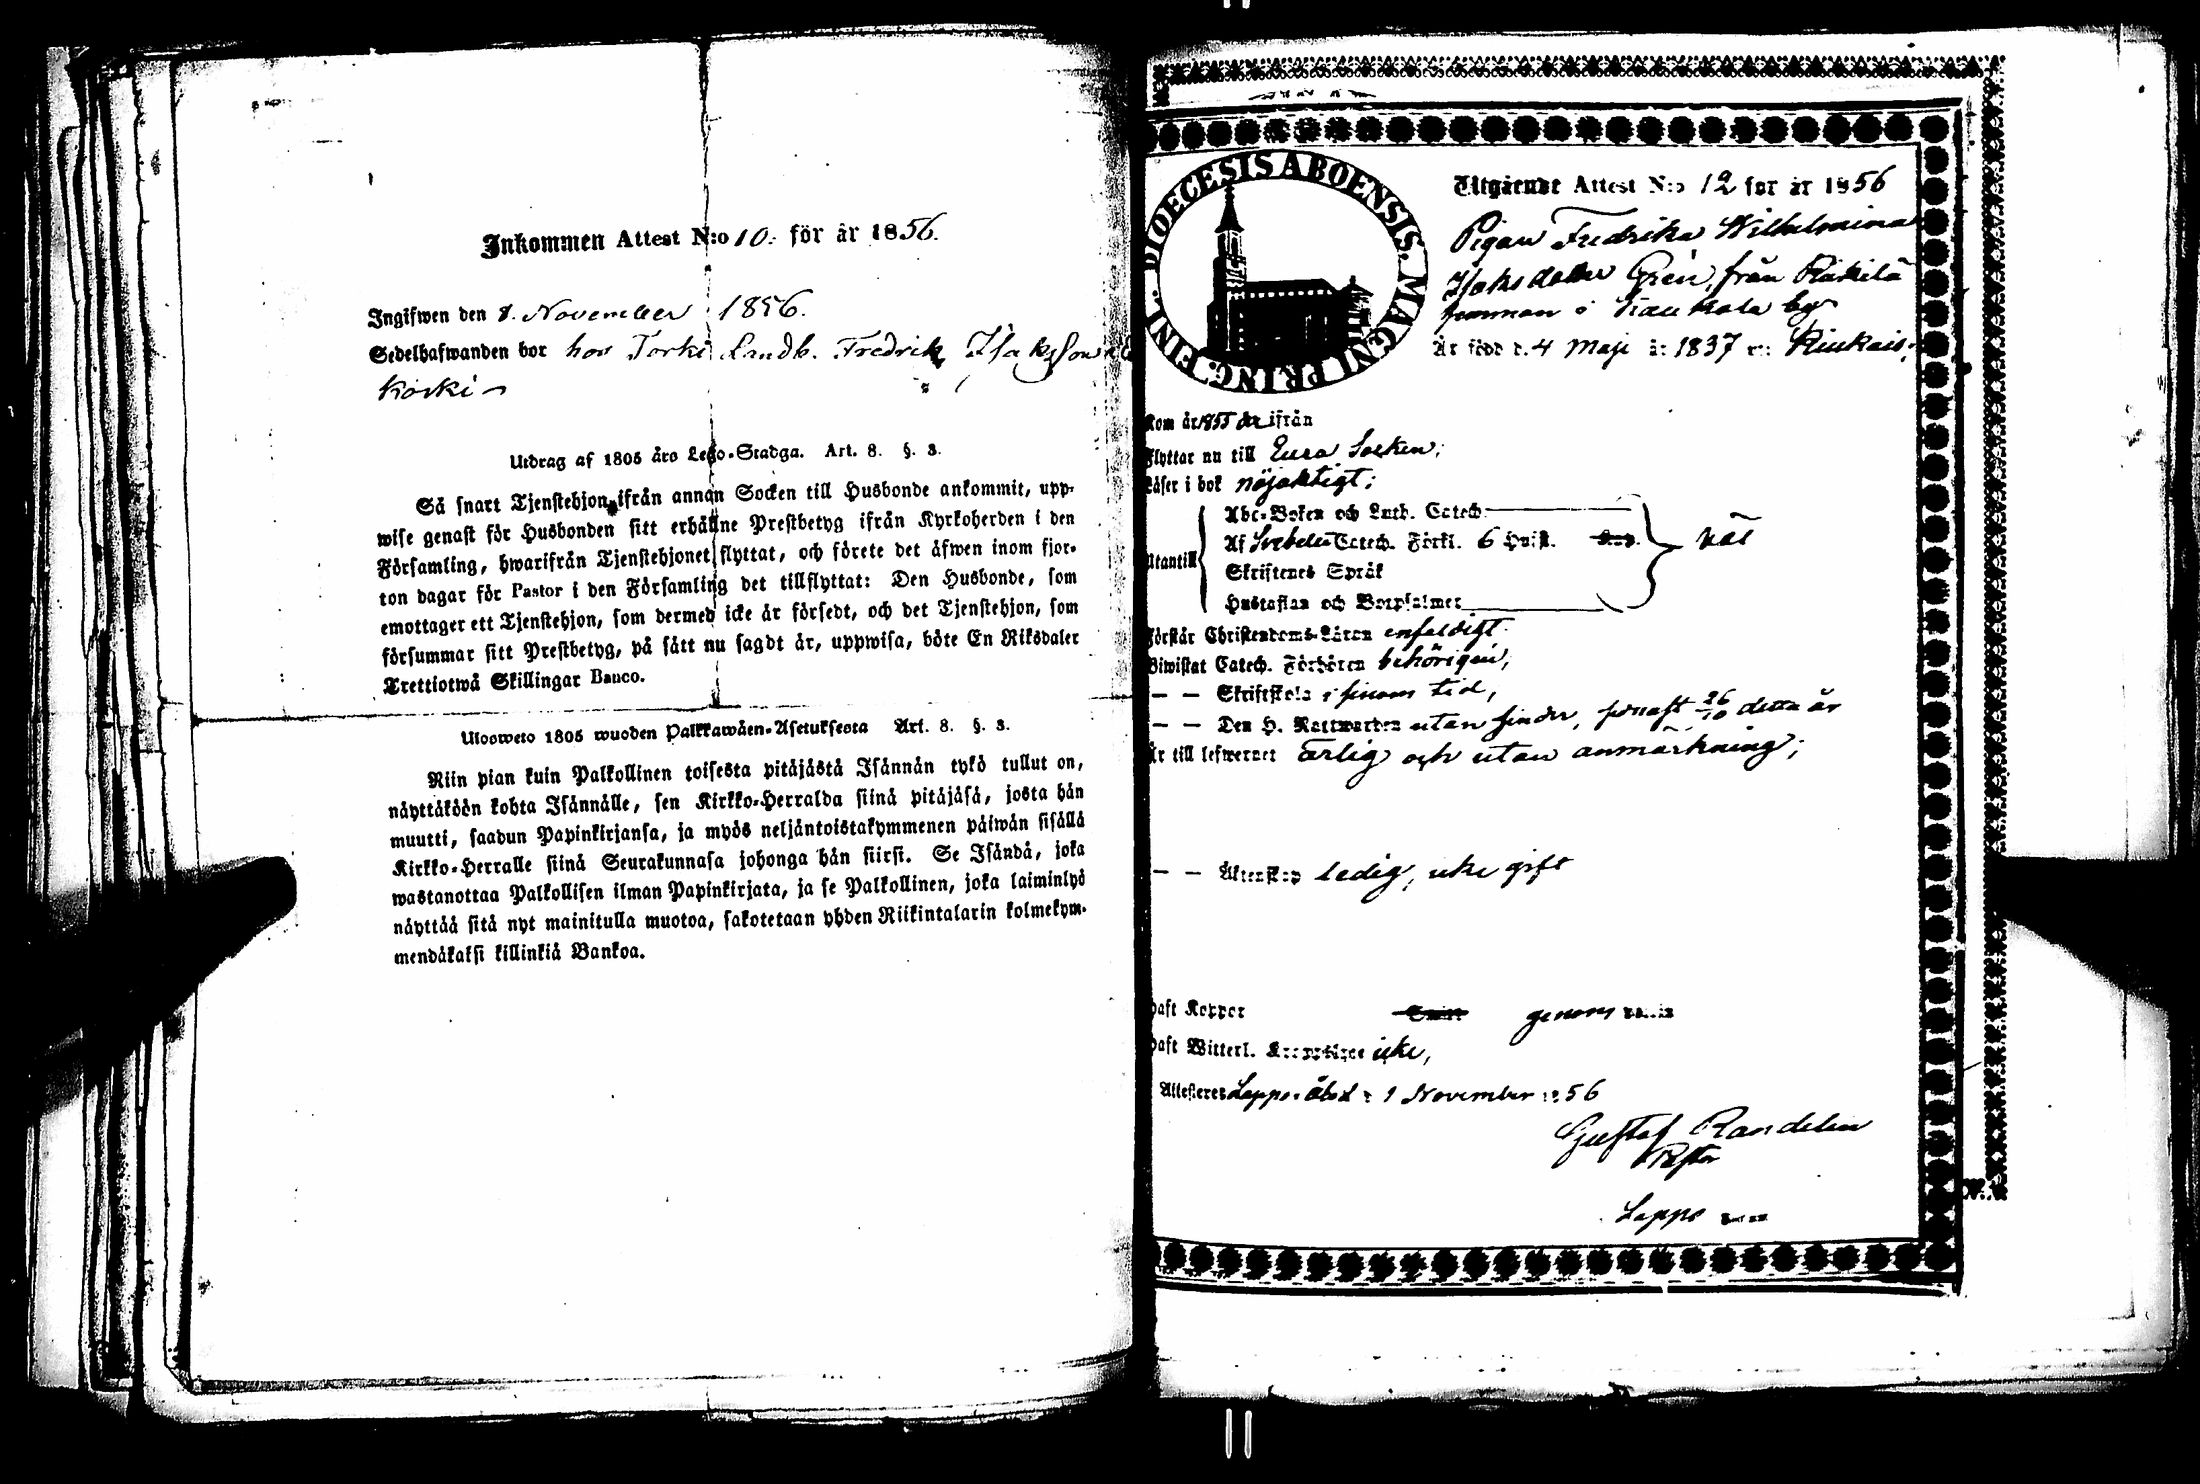 Inkommen Attest N:o 10. för år 1856.
Ingifwen den 8. November 1856.
Sedelhafwanden bor hos Torki Landb. Fredrik Isaksson
Korki
Utdrag af 1805 års Lego-Stadga. Art. 8. §. 3.
Så snart Tjenstehjon ifrån annan Socken till Husbonde ankommit, upp-
wise genast för Husbonden sitt erhållne Prestbetyg ifrån Kyrkoherden i den
Församling, hwarifrån Tjenstehjonet flyttat, och förete det äfwen inom fjor-
ton dagar för Pastor i den Församling det tillflyttat: Den Husbonde, som
emottager ett Tjenstehjon, som dermed icke är försedt, och det Tjenstehjon, som
försummar sitt Prestbetyg, på sätt nu sagdt är, uppwisa, böte En Riksdaler
Trettiotwå Skillingar Banco.
Ulosweto 1805 wuoden Palkkawäen-Asetuksesta Art. 8. §. 3.
Niin pian kuin Palkollinen toisesta pitäjästä Isännän tykö tullut on,
näyttäköön kohta Isännälle, sen Kirkko-Herralda siinä pitäjäsä, josta hän
muutti, saadun Papinkirjansa, ja myös neljäntoistakymmenen päiwän sisällä
Kirkko-Herralle siinä Seurakunnasa johonga hän siirsi. Se Isändä, joka
wastanottaa Palkollisen ilman Papinkirjata, ja se Palkollinen, joka laiminlyö
näyttää sitä nyt mainitulla muotoa, sakotetaan yhden Riikintalarin kolmekym-
mendäkaksi killinkiä Bankoa.
DIOECESIS ABOENSIS. MAGNI PRINC. FINL.
Utgående Attest N:o 12 för år 1856
Pigan Fredrika Wilhelmina
Isaksdotter Grén, från Rikilä
i Kaukola by
Är född d. 4 Maji år 1837 i Kiukais.
Kom år 1855 ifrån
Flyttar nu till Eura Socken;
Läser i bok nöjaktigt;
Utantill
Abc-Boken och Luth. Catech.
Af Svebelii Catech. Förkl. 6 Hufst. väl
Skriftenes Språk
Hustaflan och Botpsalmer
Förstår Christendoms-Läran enfaldigt
Biwistat Catech. Förhören behörigen;
— — Skriftskola i sinom tid,
— — Den H. Nattwarden utan hinder, senast 26/10 detta år
Är till lefwernet ärlig och utan anmärkning;
— — Äktenskap ledig, icke gift
haft Koppor genom
haft Witterl. icke,
Attesteres Lappo d. 1 November 1856
Gustaf Randelin
Pastor
Lappo